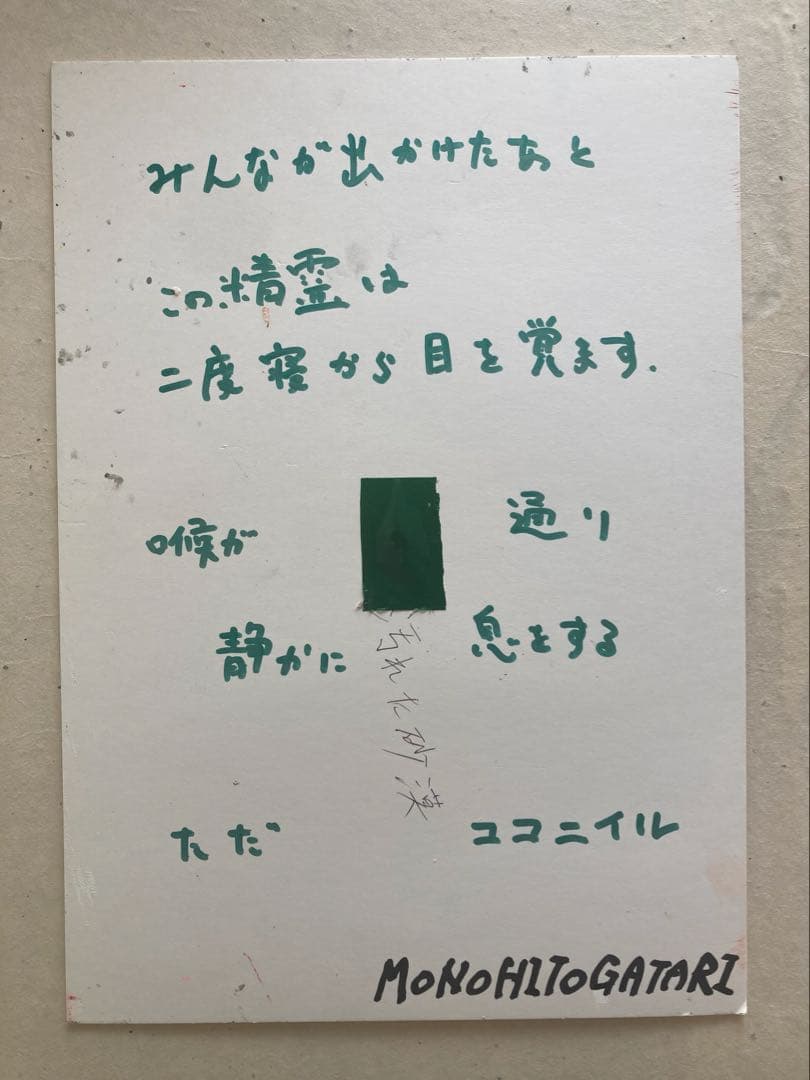 みんなが出かけたあと
この精霊は
二度寝から目を覚ます.
喉が 通り
静かに 息をする
汚れた砂漠
ただ ココニイル
MONOHITOGATARI